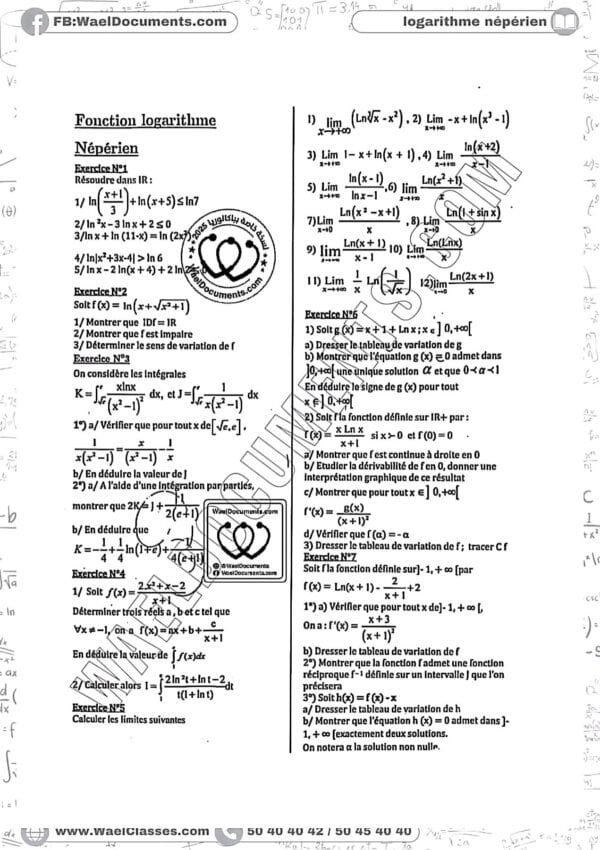 FB:WaelDocuments.com
logarithme népérien
Fonction logarithme
Népérien
Exercice N°1
Résoudre dans IR :
1/ ln((x+1)/3)+ln(x+5)≤ln7
2/ ln²x-3 ln x + 2 ≤ 0
3/ln x + ln (11-x) = ln (2x
4/ ln|x²+3x-4| > ln 6
5/ ln x - 2 ln(x + 4) + 2 ln
Exercice N°2
Soit f (x) = ln(x+√(x²+1))
1/ Montrer que IDf = IR
2/ Montrer que f est impaire
3/ Déterminer le sens de variation de f
Exercice N°3
On considère les intégrales
K=∫ xlnx/(x²-1)² dx, et J=∫ 1/(x(x²-1)) dx
1°) a/ Vérifier que pour tout x de[√e,e],
1/(x(x²-1)) = x/(x²-1) - 1/x
b/ En déduire la valeur de J
2°) a/ A l'aide d'une intégration par parties,
montrer que 2K= J + 1/(2(e+1))
b/ En déduire que
K=-1/4+1/4ln(1+e)+ 1/(4(e+1))
Exercice N°4
1/ Soit f(x)= (2x²+x-2)/(x+1)
Déterminer trois réels a , b et c tel que
∀x ≠ -1, on a f(x)=ax+b+c/(x+1)
En déduire la valeur de ∫f(x)dx
2/ Calculer alors I=∫(2ln²t+lnt-2)/(t(1+lnt))dt
Exercice N°5
Calculer les limites suivantes
1) lim x→+∞ (Ln∛x - x²) , 2) Lim x→+∞ -x+ln(x³-1)
3) Lim x→+∞ 1-x+ln(x + 1) ,4) Lim x→+∞ ln(x+2)/(x-1)
5) Lim x→+∞ ln(x-1)/(ln x-1) ,6) lim x→+∞ Ln(x²+1)/x
7)Lim x→0 Ln(x²-x+1)/x , 8) Lim x→0 Ln(1+sin x)/x
9) lim x→+∞ Ln(x+1)/x 10) Lim x→+∞ Ln(Lnx)/x
11) Lim x→+∞ 1/x Ln(1/√x) 12)lim x→+∞ Ln(2x+1)/x
Exercice N°6
1) Soit g (x) = x + 1 + Ln x ; x ∈ ] 0,+∞[
a) Dresser le tableau de variation de g
b) Montrer que l'équation g (x) = 0 admet dans
]0,+∞[ une unique solution α et que 0<α<1
En déduire le signe de g (x) pour tout
x ∈ ] 0,+∞[
2) Soit f la fonction définie sur IR+ par :
f (x) = (x Ln x)/(x+1) si x > 0 et f (0) = 0
a/ Montrer que f est continue à droite en 0
b/ Etudier la dérivabilité de f en 0, donner une
interprétation graphique de ce résultat
c/ Montrer que pour tout x ∈ ] 0,+∞[
f'(x) = g(x)/(x+1)²
d/ Vérifie que f (α) = - α
3) Dresser le tableau de variation de f ; tracer Cf
Exercice N°7
Soit f la fonction définie sur]- 1, + ∞ [par
f (x) = Ln(x + 1) - 2/(x+1) +2
1°) a) Vérifier que pour tout x de]- 1, + ∞ [,
On a : f '(x) = (x+3)/(x+1)²
b) Dresser le tableau de variation de f
2°) Montrer que la fonction f admet une fonction
réciproque f⁻¹ définie sur un intervalle J que l'on
précisera
3°) Soit h(x) = f (x) - x
a/ Dresser le tableau de variation de h
b/ Montrer que l'équation h (x) = 0 admet dans ]-
1, + ∞ [exactement deux solutions.
On notera α la solution non nulle.
نسخة خاصة ببكالوريا 2025
WaelDocuments.com
WaelDocuments.com
@WaelDocuments
WaelDocuments.com
WAELDOCUMENTS.COM
www.WaelClasses.com
50 40 40 42 / 50 45 40 40